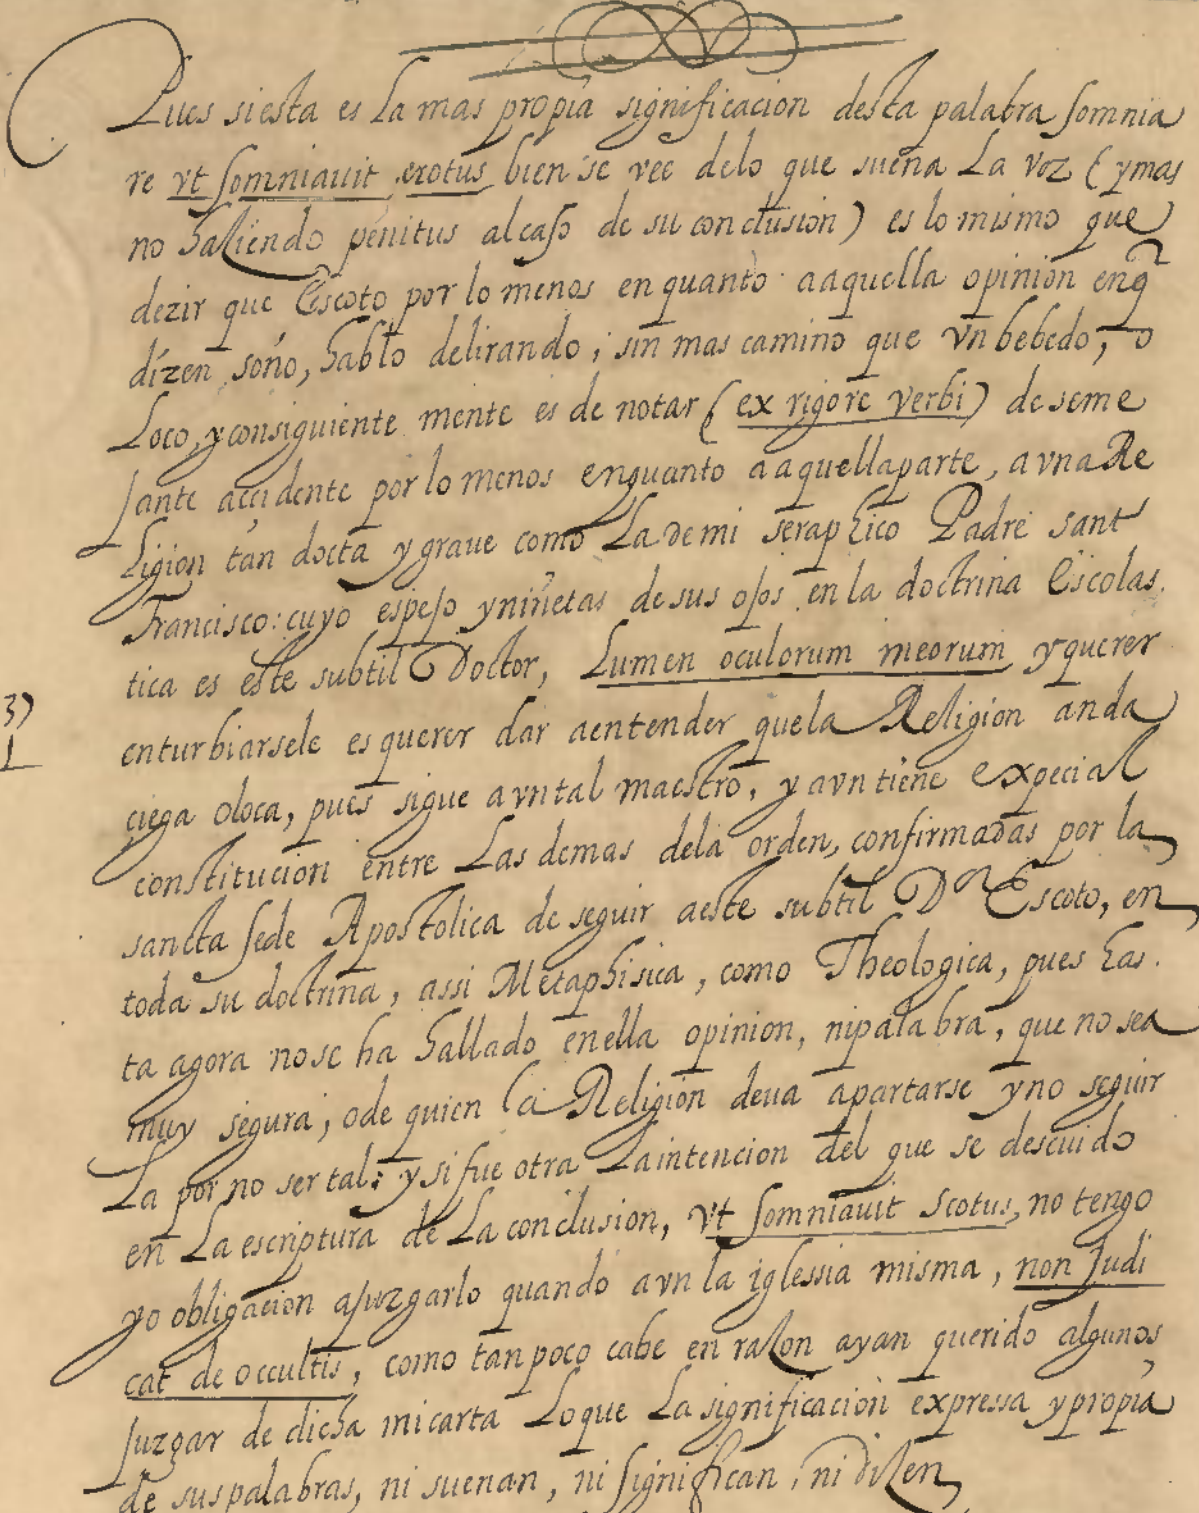 Pues si esta es La mas propia significacion desta palabra somnia
re vt somniauit scotus bien se vee delo que suena La voz (y mas
no haziendo penitus al caso de su conclusion) es lo mismo que
dezir que Escoto por lo menos en quanto a aquella opinion en q̃
dizen soño, hablo delirando, sin mas camino que vn bebedo, o
Loco, y consiguiente mente es de notar (ex rigore verbi) de seme
jante accidente por lo menos enquanto a aquella parte, a vna Re
ligion tan docta y graue como La de mi seraphico Padre sant
Francisco: cuyo espejo y niñetas de sus ojos en la doctrina Escolas.
tica es este subtil Doctor, Lumen oculorum meorum y querer
enturbiarsele es querer dar a entender que la Religion anda
çiega o loca, pues sigue a vn tal maestro, y avn tiene expecial
constitucion entre Las demas dela orden, confirmadas por la
sancta sede Apostolica de seguir a este subtil Dor Escoto, en
toda su doctrina, assi Metaphisica, como Theologica, pues has.
ta agora no se ha hallado en ella opinion, ni palabra, que no sea
muy segura, o de quien la Religion deua apartarse y no seguir
La por no ser tal: y si fue otra La intencion del que se descuido
en La escriptura de La conclusion, vt somniauit Scotus, no tengo
yo obligacion a juzgarlo quando avn la iglessia misma, non Judi
cat de occultis, como tan poco cabe en razon ayan querido algunos
Juzgar de dicha mi carta Lo que La significacion expressa y propia
de sus palabras, ni suenan, ni significan, ni dizen
3)
1